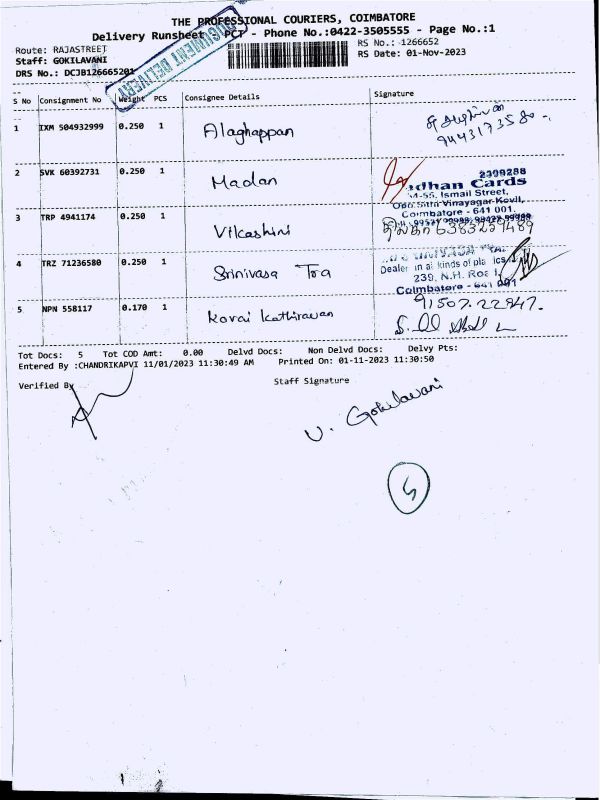 THE PROFESSIONAL COURIERS, COIMBATORE
Delivery Runsheet PCT - Phone No.:0422-3505555 - Page No.:1
Route: RAJASTREET
RS No.: 1266652
Staff: GOKILAVANI
RS Date: 01-Nov-2023
DRS No.: DCJB126665201
DOCUMENT DELIVERY
S No Consignment No Weight PCS Consignee Details Signature
1 IXM 504932999 0.250 1 Alaghappan
2 SVK 60392731 0.250 1 Madan
2399288
Cards
Ismail Street,
Vinayagar Kovil,
Coimbatore - 641 001.
3 TRP 4941174 0.250 1 Vikashini
6383259489
4 TRZ 71236580 0.250 1 Srinivasa Tra
Dealer in all kinds of
239, N.H. Road
Coimbatore - 641 001
5 NPN 558117 0.170 1 Kovai Kathiravan
91507.22947.
Tot Docs: 5 Tot COD Amt: 0.00 Delvd Docs: Non Delvd Docs: Delvy Pts:
Entered By :CHANDRIKAPVI 11/01/2023 11:30:49 AM Printed On: 01-11-2023 11:30:50
Verified By
Staff Signature
V. Gokilavani
5